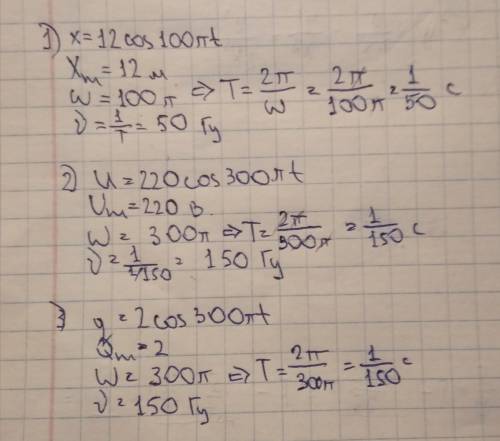 1) x = 12 cos 100πt
Xm = 12 м
ω = 100π ⇒ T = 2π/ω = 2π/100π = 1/50 с
ν = 1/T = 50 Гц
2) U = 220 cos 300πt
Um = 220 В.
ω = 300π ⇒ T = 2π/300π = 1/150 с
ν = 1/1/150 = 150 Гц
3) q = 2 cos 300πt
Qm = 2
ω = 300π ⇒ T = 2π/300π = 1/150 с
ν = 150 Гц